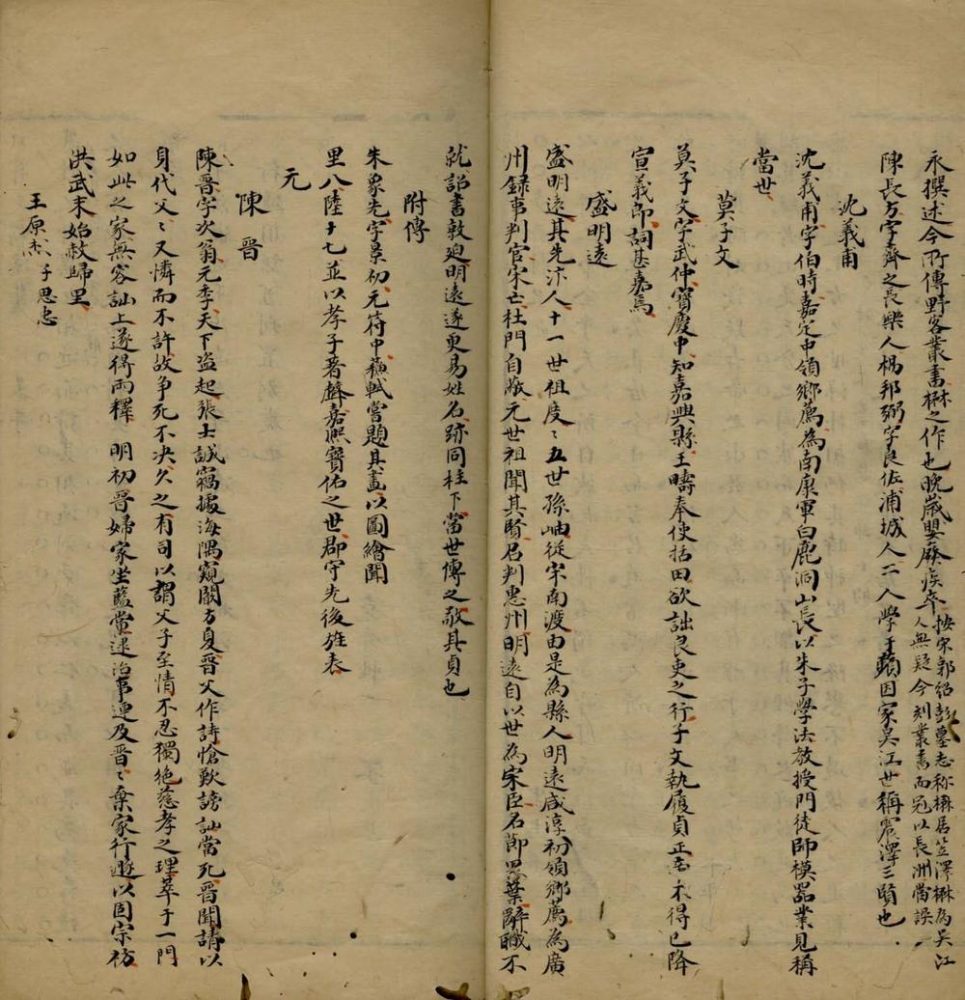 永撰述今所傳野客叢書楙之作也晚歲嬰廢疾卒按宋郭紹彭墓志称楙居笠澤楙為吳江
人無疑今刻叢書而冠以長洲當誤
陳長方字齊之長樂人楊邦弼字良佐浦城人二人學王蘋因家吳江世稱震澤三賢也
沈義甫
沈義甫字伯時嘉定中領鄉薦為南康軍白鹿洞山長以朱子學法放授門徒師模器業見稱
當世
莫子文
莫子文字武仲寶慶中知嘉興縣王疇奉使括田欲詘良吏之行子文執履貞正不得已降
宣義郎詞甚嘉焉
盛明遠
盛明遠其先汴人十一世祖度〻五世孫岫從宋南渡由是為縣人明遠咸淳初領鄉薦為廣
州錄事判官宋亡杜門自誓元世祖聞其賢召判惠州明遠自以世為宋臣名節是葉辭職不
就詔書敦廹明遠遂更易姓名跡同柱下當世傳之敬其貞也
附傳
朱象先字景初元符中蘇軾嘗題其畫以圖繪聞
里八陸十七並以孝子著聲嘉熙寶佑之世郡守先後旌表
元
陳晋
陳晋字次翁元季天下盗起張士誠竊據海隅窺闚方夏晋父作詩愴歎謗訕當死晋聞請以
身代父〻又憐而不許故争死不决久之有司以謂父子至情不忍獨絶慈孝之理萃于一門
如此之家無容訕上遂得兩釋 明初晋婦家坐藍黨逮治事連及晋〻棄家行遯以固宗祊
洪武末始赦歸里
王原杰子思忠